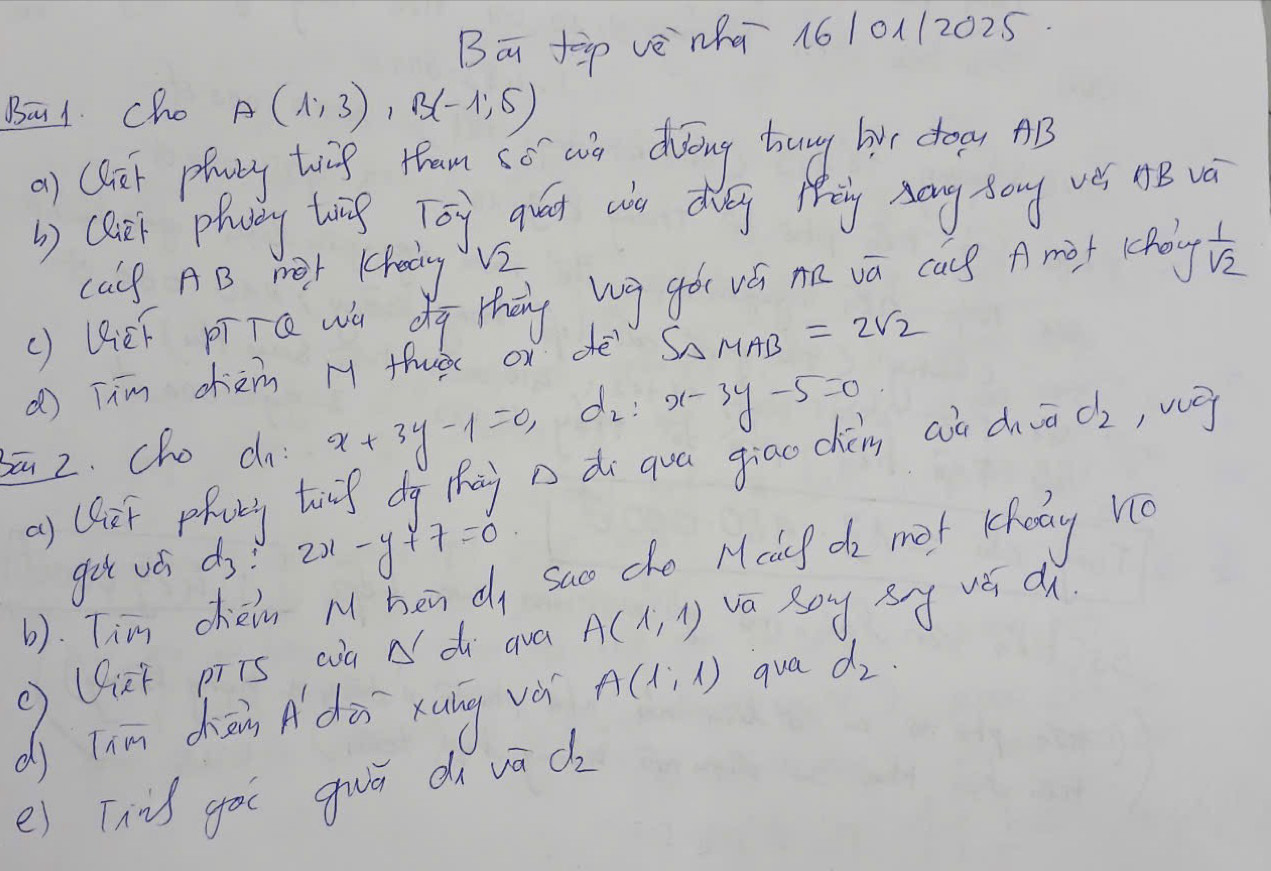 Bài tập về nhà 16/01/2025.
Bài 1. Cho A(1;3), B(-1;5)
a) Viết phương trình tham số của đường trung trực đoạn AB
b) Viết phương trình Tổng quát của đường thẳng song song với AB và
cách AB một khoảng √2
c) Viết PTTQ của đg thẳng vuông góc với AB và cách A một khoảng 1/√2
d) Tìm điểm M thuộc ox để S∆MAB = 2√2
Bài 2. Cho d₁: x + 3y - 1 = 0, d₂: x - 3y - 5 = 0.
a) Viết phương trình đg thẳng ∆ đi qua giao điểm của d₁ và d₂, vuông
góc với d₃: 2x - y + 7 = 0.
b). Tìm điểm M trên d₁ sao cho M cách d₂ một khoảng √10
c) Viết PTTS của ∆' đi qua A(1;1) và song song với d₁.
d) Tìm điểm A' đối xứng với A(1;1) qua d₂.
e) Tính góc giữa d₁ và d₂